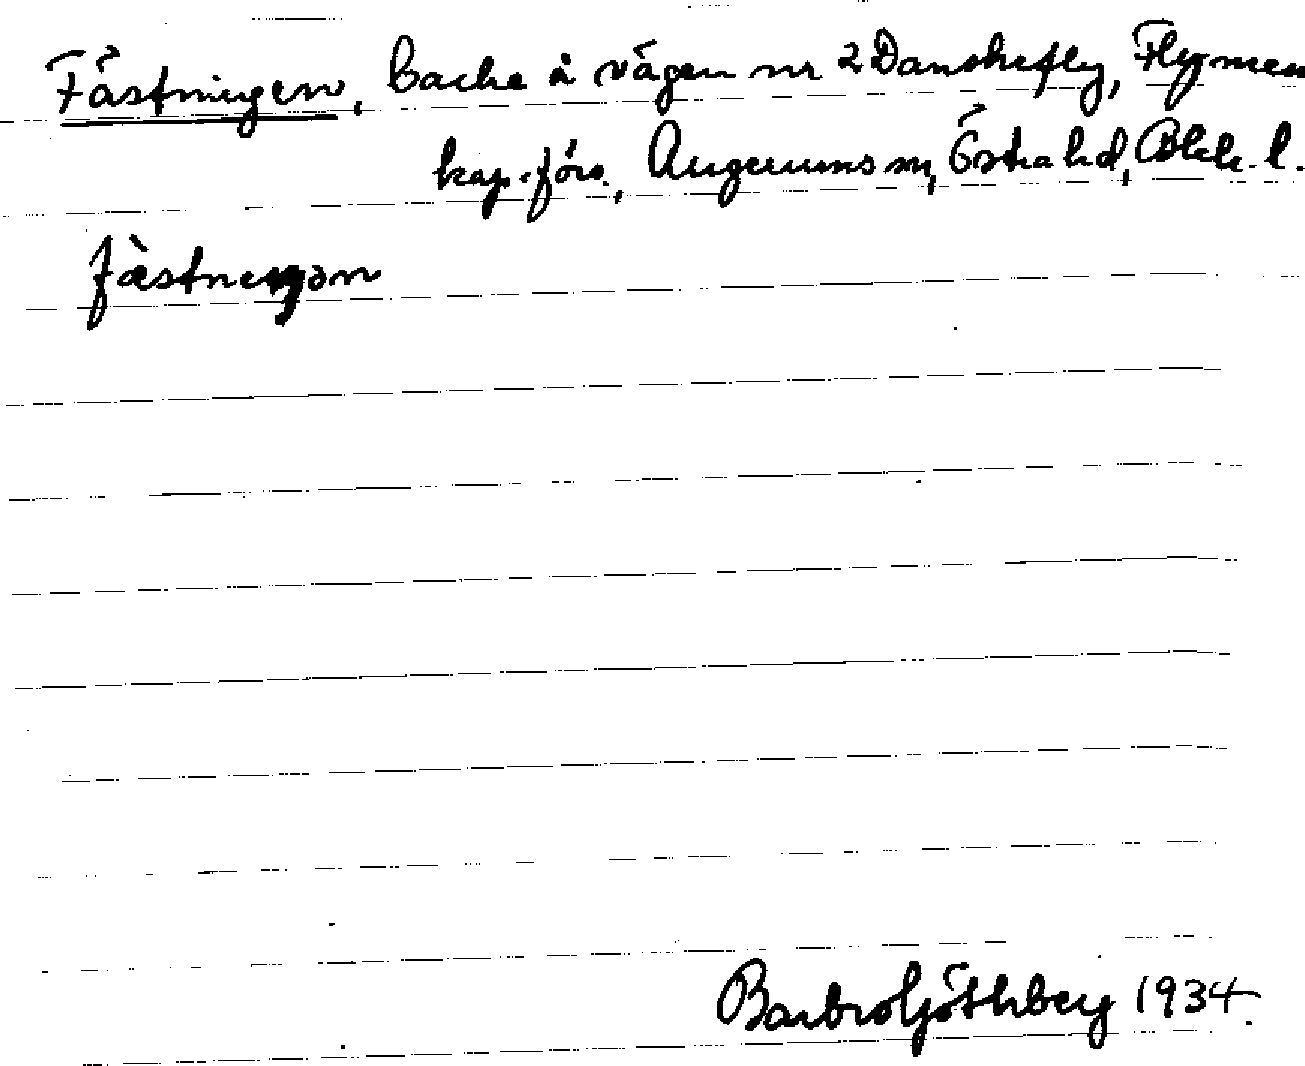 Fästningen, backe å vägen nr 2 Danskefly, Flymen
kap.förs., Augerums sn, Östra hd, Blek. l.
fàstneŋən
Barbro Göthberg 1934.